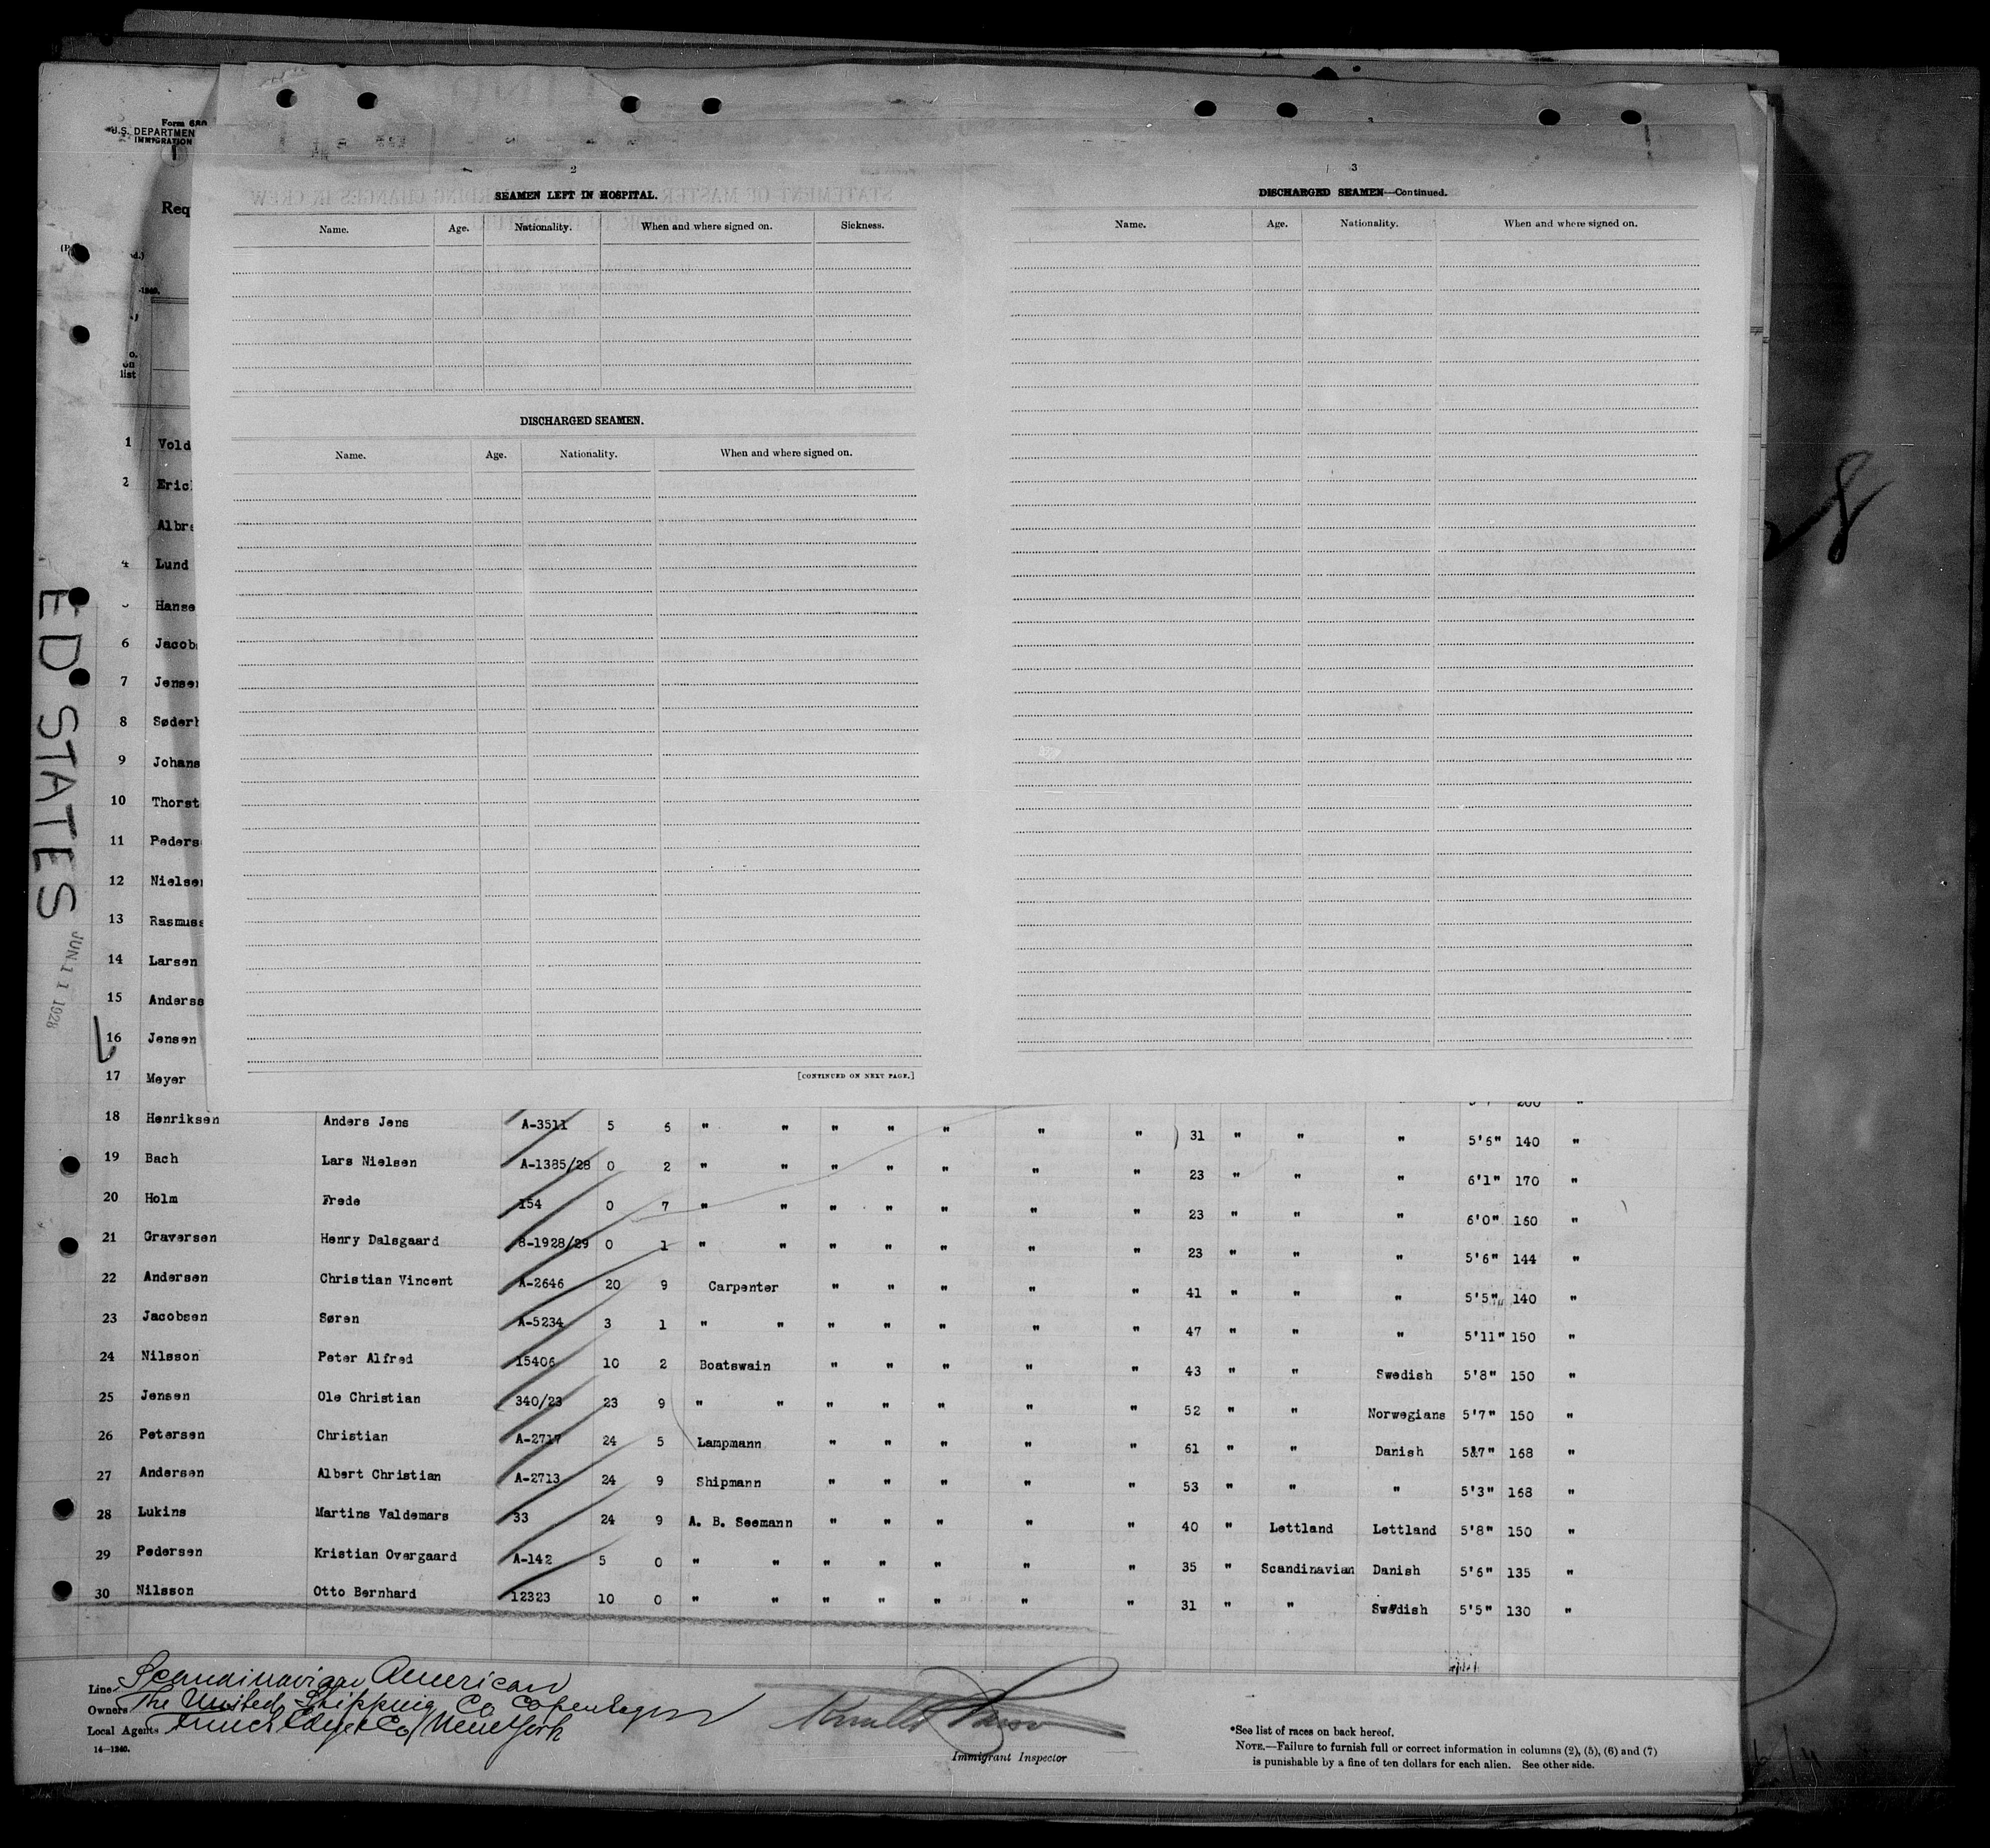 Form 680
U.S. DEPARTMEN
IMMIGRATION
Req
list
2
SEAMEN LEFT IN HOSPITAL.
Name. Age. Nationality. When and where signed on. Sickness.
DISCHARGED SEAMEN.
Name. Age. Nationality. When and where signed on.
[CONTINUED ON NEXT PAGE.]
3
DISCHARGED SEAMEN—Continued.
Name. Age. Nationality. When and where signed on.
ED STATES
JUN 11 1928
1 Vold
2 Eric
Albre
4 Lund
Hanse
6 Jacob
7 Jensen
8 Søderh
9 Johans
10 Thorst
11 Peders
12 Nielsen
13 Rasmuss
14 Larsen
15 Anderss
16 Jensen
17 Meyer
18 Henriksen Anders Jens A-3511 5 6 " " " " " " " 31 " " " 5'6" 140 "
19 Bach Lars Nielsen A-1385/28 0 2 " " " " " " " 23 " " " 6'1" 170 "
20 Holm Frede 154 0 7 " " " " " " " 23 " " " 6'0" 160 "
21 Graversen Henry Dalsgaard 8-1928/29 0 1 " " " " " " " 23 " " " 5'6" 144 "
22 Andersen Christian Vincent A-2646 20 9 Carpenter " " " " " 41 " " " 5'5" 140 "
23 Jacobsen Søren A-5234 3 1 " " " " " " " 47 " " " 5'11" 150 "
24 Nilsson Peter Alfred 15406 10 2 Boatswain " " " " " 43 " " Swedish 5'8" 150 "
25 Jensen Ole Christian 340/23 23 9 " " " " " " " 52 " " Norwegians 5'7" 150 "
26 Petersen Christian A-2717 24 5 Lampmann " " " " " 61 " " Danish 5'7" 168 "
27 Andersen Albert Christian A-2713 24 9 Shipmann " " " " " 53 " " " 5'3" 168 "
28 Lukins Martins Valdemars 33 24 9 A. B. Seemann " " " " " 40 " Lettland Lettland 5'8" 150 "
29 Pedersen Kristian Overgaard A-142 5 0 " " " " " " " 35 " Scandinavian Danish 5'6" 135 "
30 Nilsson Otto Bernhard 12323 10 0 " " " " " " " 31 " " Swedish 5'5" 130 "
Line Scandinavian American
Owners The United Shipping Co Copenhagen
Local Agents Funch Edye & Co/New York
14—1240.
Immigrant Inspector
*See list of races on back hereof.
NOTE.—Failure to furnish full or correct information in columns (2), (5), (6) and (7)
is punishable by a fine of ten dollars for each alien. See other side.